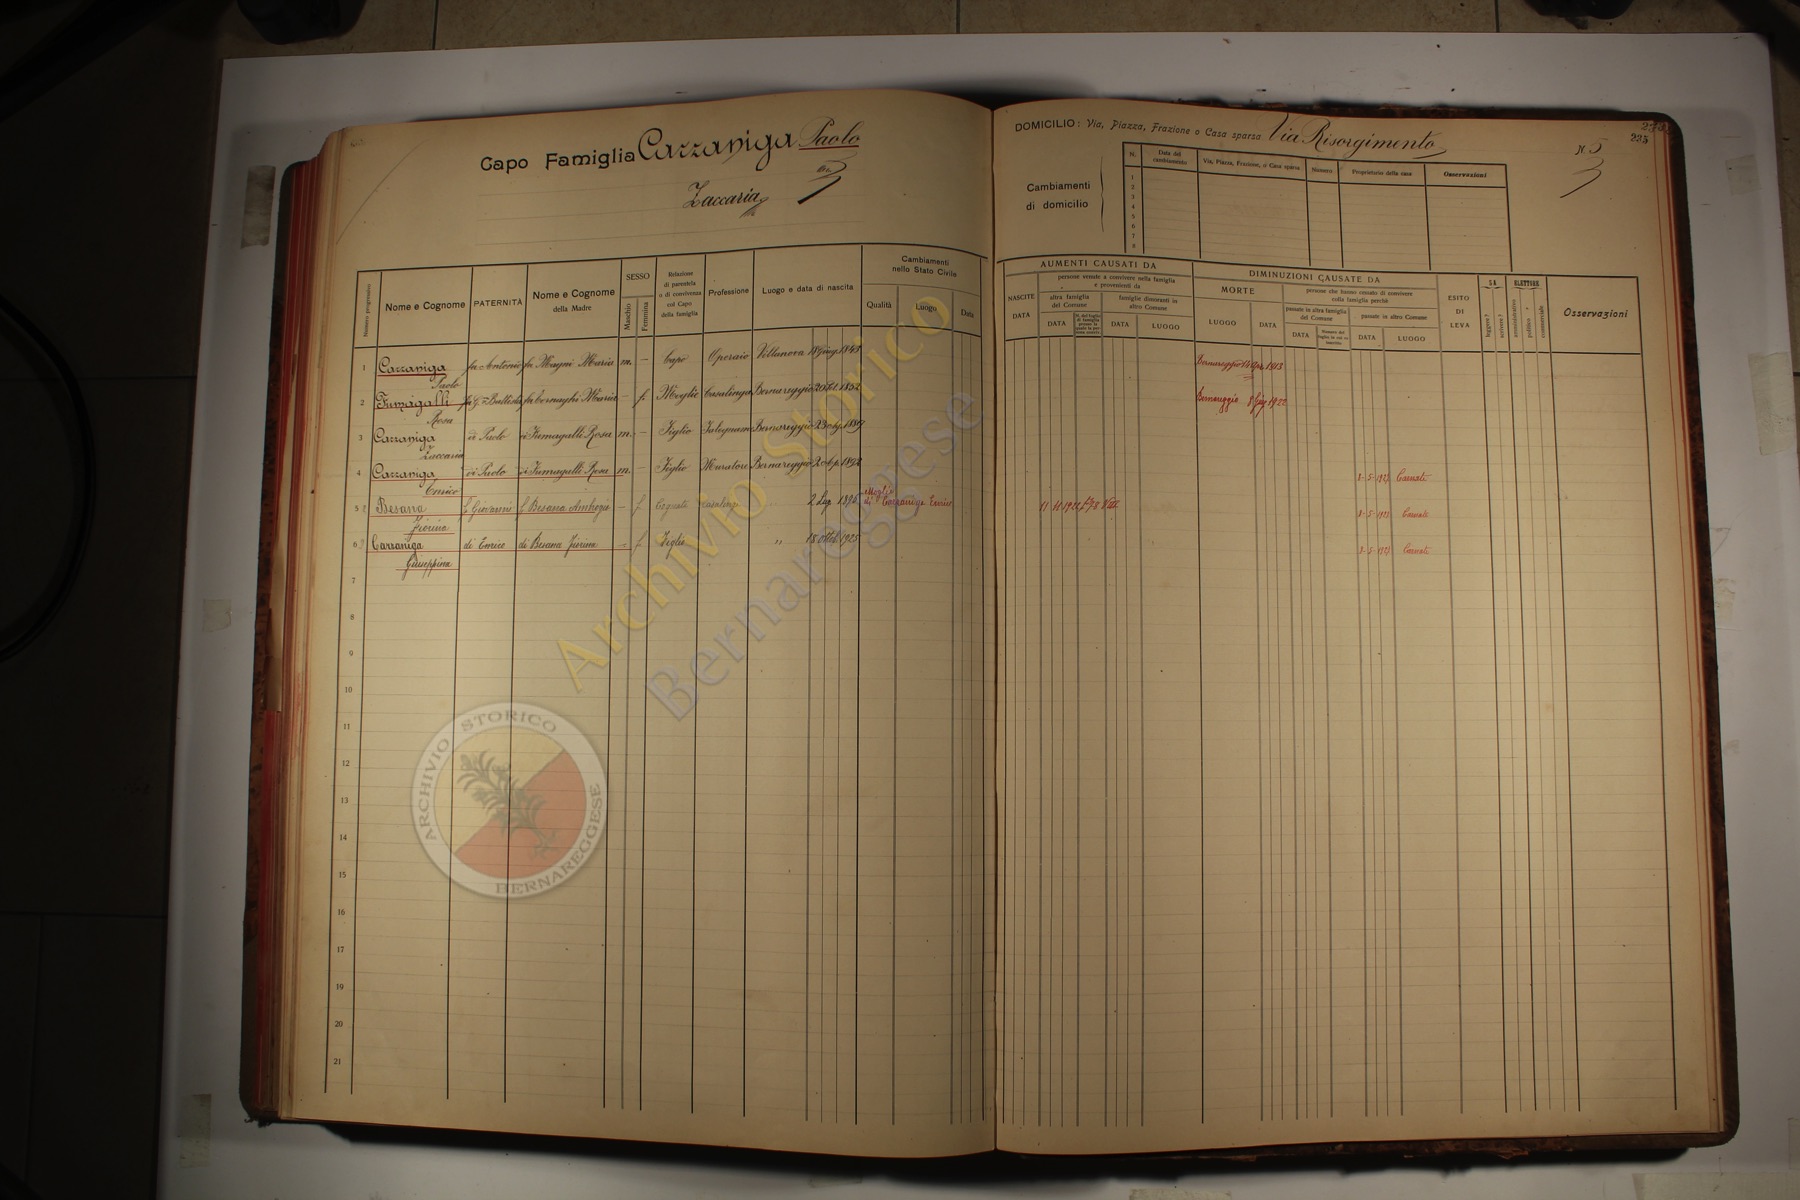 Capo Famiglia Cazzaniga Paolo
Zaccaria
Numero progressivo
Nome e Cognome
PATERNITÀ
Nome e Cognome
della Madre
SESSO
Maschio
Femmina
Relazione
di parentela
o di convivenza
col Capo
della famiglia
Professione
Luogo e data di nascita
Cambiamenti
nello Stato Civile
Qualità
Luogo
Data
1 Cazzaniga fu Antonio fu Magni Maria m. — Capo Operaio Villanova 18 Giug. 1849
Paolo
2 Fumagalli fu G. Battista fu Bernaghi Maria — f. Moglie Casalinga Bernareggio 20 1852
Rosa
3 Cazzaniga di Paolo di Fumagalli Rosa m. — Figlio Falegname Bernareggio 23 1887
Zaccaria
4 Cazzaniga di Paolo di Fumagalli Rosa m. — Figlio Muratore Bernareggio 2 1892
Enrico
5 Besana f Giovanni f Besana Ambrogia — f. Cognata casalinga 2 Lug 1896 Moglie
di Cazzaniga Enrico
Fiorina
6 Cazzaniga di Enrico di Besana Fiorina — f. Figlia „ 18 Ottob. 1925
Giuseppina
7
8
9
10
11
12
13
14
15
16
17
18
19
20
21
DOMICILIO: Via, Piazza, Frazione o Casa sparsa Via Risorgimento N. 5
235
Cambiamenti
di domicilio
N.
Data del
cambiamento
Via, Piazza, Frazione, o Casa sparsa
Numero
Proprietario della casa
Osservazioni
1
2
3
4
5
6
7
8
AUMENTI CAUSATI DA
NASCITE
DATA
persone venute a convivere nella famiglia
e provenienti da
altra famiglia
del Comune
DATA
famiglie dimoranti in
altro Comune
DATA
LUOGO
DIMINUZIONI CAUSATE DA
MORTE
LUOGO
DATA
persone che hanno cessato di convivere
colla famiglia perchè
passate in altra famiglia
del Comune
DATA
passate in altro Comune
DATA
LUOGO
ESITO
DI
LEVA
SA
leggere?
scrivere?
ELETTORE
amministrativo
politico
commerciale
Osservazioni
Bernareggio 14 1913
Bernareggio 8 Giug 1922
1-5-1927 Carnate
11 11 1922
1-5-1927 Carnate
1-5-1927 Carnate
Archivio Storico
Bernareggese
ARCHIVIO STORICO
BERNAREGGESE